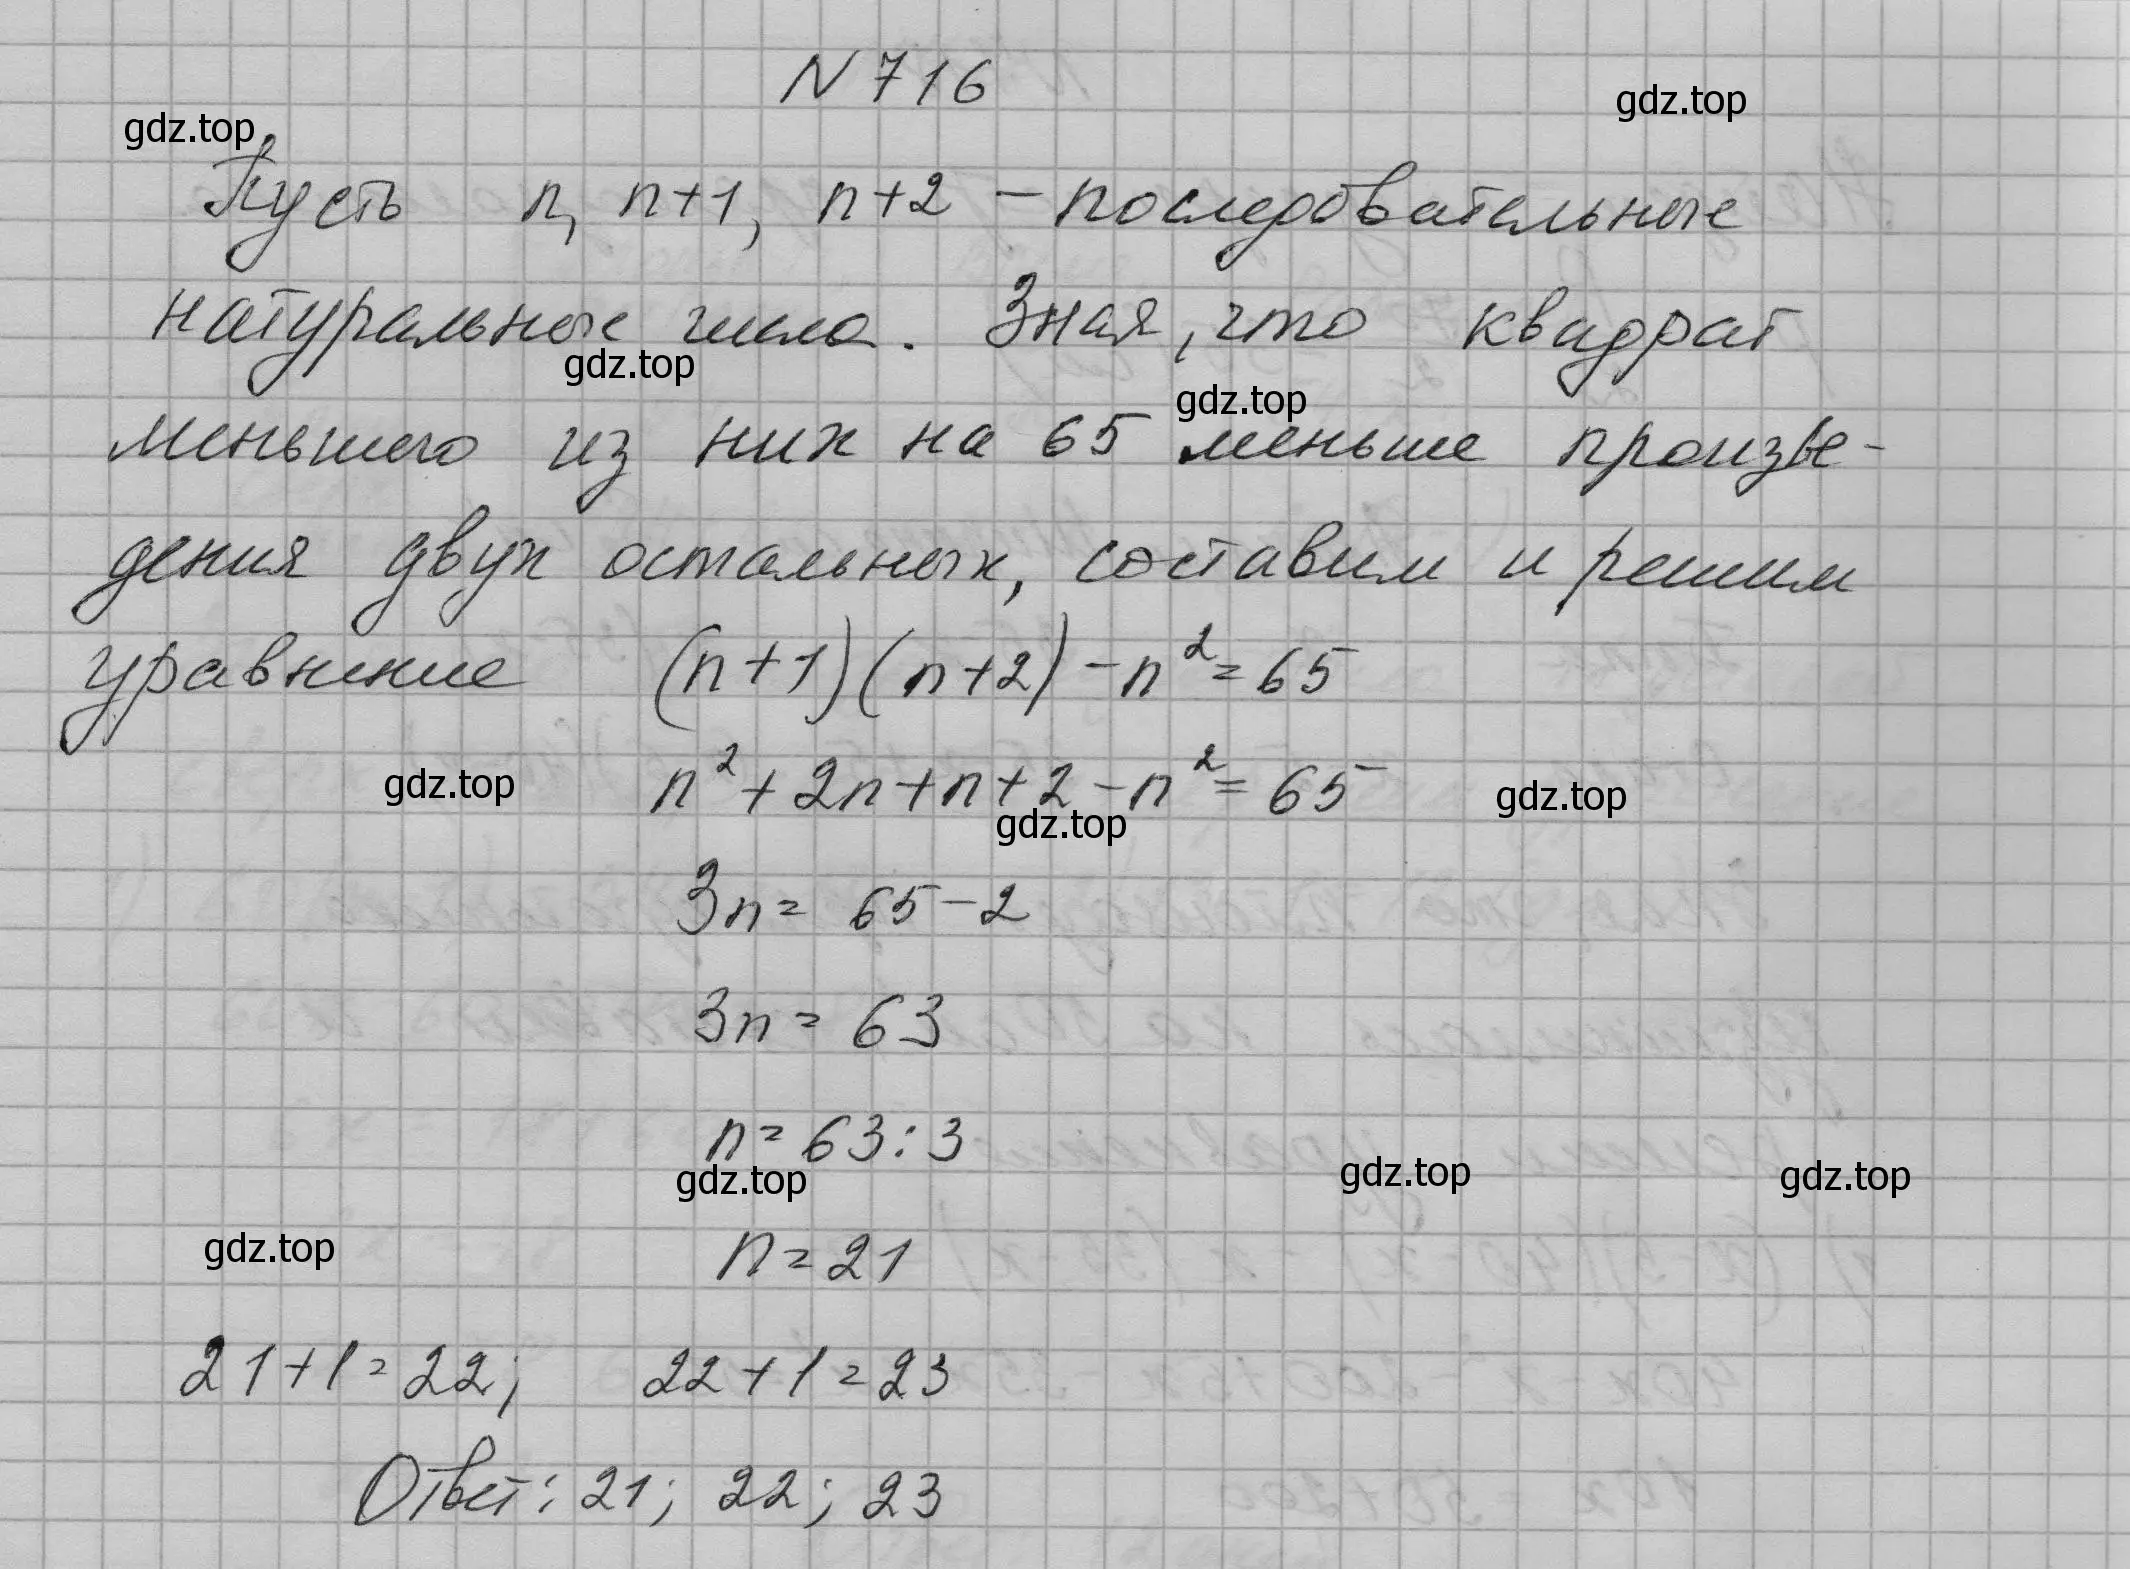 N 716
gdz.top
gdz.top
Пусть n, n+1, n+2 – последовательные
натуральные числа. Зная, что квадрат
gdz.top
gdz.top
меньшего из них на 65 меньше произве-
дения двух остальных, составим и решим
уравнение (n+1)(n+2)-n²=65
n²+2n+n+2-n²=65
gdz.top
gdz.top
gdz.top
3n= 65-2
3n= 63
n=63:3
gdz.top
gdz.top
gdz.top
gdz.top
n=21
21+1=22; 22+1=23
Ответ: 21; 22; 23